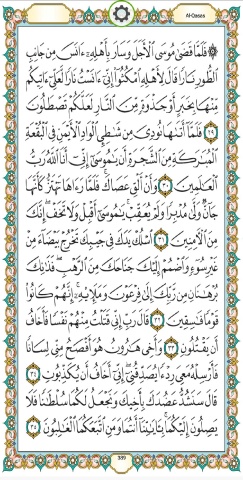 Al-Qasas
۞ فَلَمَّا قَضَىٰ مُوسَى ٱلْأَجَلَ وَسَارَ بِأَهْلِهِۦٓ ءَانَسَ مِن جَانِبِ
ٱلطُّورِ نَارًا قَالَ لِأَهْلِهِ ٱمْكُثُوٓا۟ إِنِّىٓ ءَانَسْتُ نَارًا لَّعَلِّىٓ ءَاتِيكُم
مِّنْهَا بِخَبَرٍ أَوْ جَذْوَةٍ مِّنَ ٱلنَّارِ لَعَلَّكُمْ تَصْطَلُونَ
٢٩ فَلَمَّآ أَتَىٰهَا نُودِىَ مِن شَٰطِئِ ٱلْوَادِ ٱلْأَيْمَنِ فِى ٱلْبُقْعَةِ
ٱلْمُبَٰرَكَةِ مِنَ ٱلشَّجَرَةِ أَن يَٰمُوسَىٰٓ إِنِّىٓ أَنَا ٱللَّهُ رَبُّ
ٱلْعَٰلَمِينَ ٣٠ وَأَنْ أَلْقِ عَصَاكَ ۖ فَلَمَّا رَءَاهَا تَهْتَزُّ كَأَنَّهَا
جَآنٌّ وَلَّىٰ مُدْبِرًا وَلَمْ يُعَقِّبْ ۚ يَٰمُوسَىٰٓ أَقْبِلْ وَلَا تَخَفْ ۖ إِنَّكَ
مِنَ ٱلْءَامِنِينَ ٣١ ٱسْلُكْ يَدَكَ فِى جَيْبِكَ تَخْرُجْ بَيْضَآءَ مِنْ
غَيْرِ سُوٓءٍ وَٱضْمُمْ إِلَيْكَ جَنَاحَكَ مِنَ ٱلرَّهْبِ ۖ فَذَٰنِكَ
بُرْهَٰنَانِ مِن رَّبِّكَ إِلَىٰ فِرْعَوْنَ وَمَلَإِي۟هِۦٓ ۚ إِنَّهُمْ كَانُوا۟
قَوْمًا فَٰسِقِينَ ٣٢ قَالَ رَبِّ إِنِّى قَتَلْتُ مِنْهُمْ نَفْسًا فَأَخَافُ
أَن يَقْتُلُونِ ٣٣ وَأَخِى هَٰرُونُ هُوَ أَفْصَحُ مِنِّى لِسَانًا
فَأَرْسِلْهُ مَعِىَ رِدْءًا يُصَدِّقُنِىٓ ۖ إِنِّىٓ أَخَافُ أَن يُكَذِّبُونِ ٣٤
قَالَ سَنَشُدُّ عَضُدَكَ بِأَخِيكَ وَنَجْعَلُ لَكُمَا سُلْطَٰنًا فَلَا
يَصِلُونَ إِلَيْكُمَا ۚ بِـَٔايَٰتِنَآ أَنتُمَا وَمَنِ ٱتَّبَعَكُمَا ٱلْغَٰلِبُونَ ٣٥
389